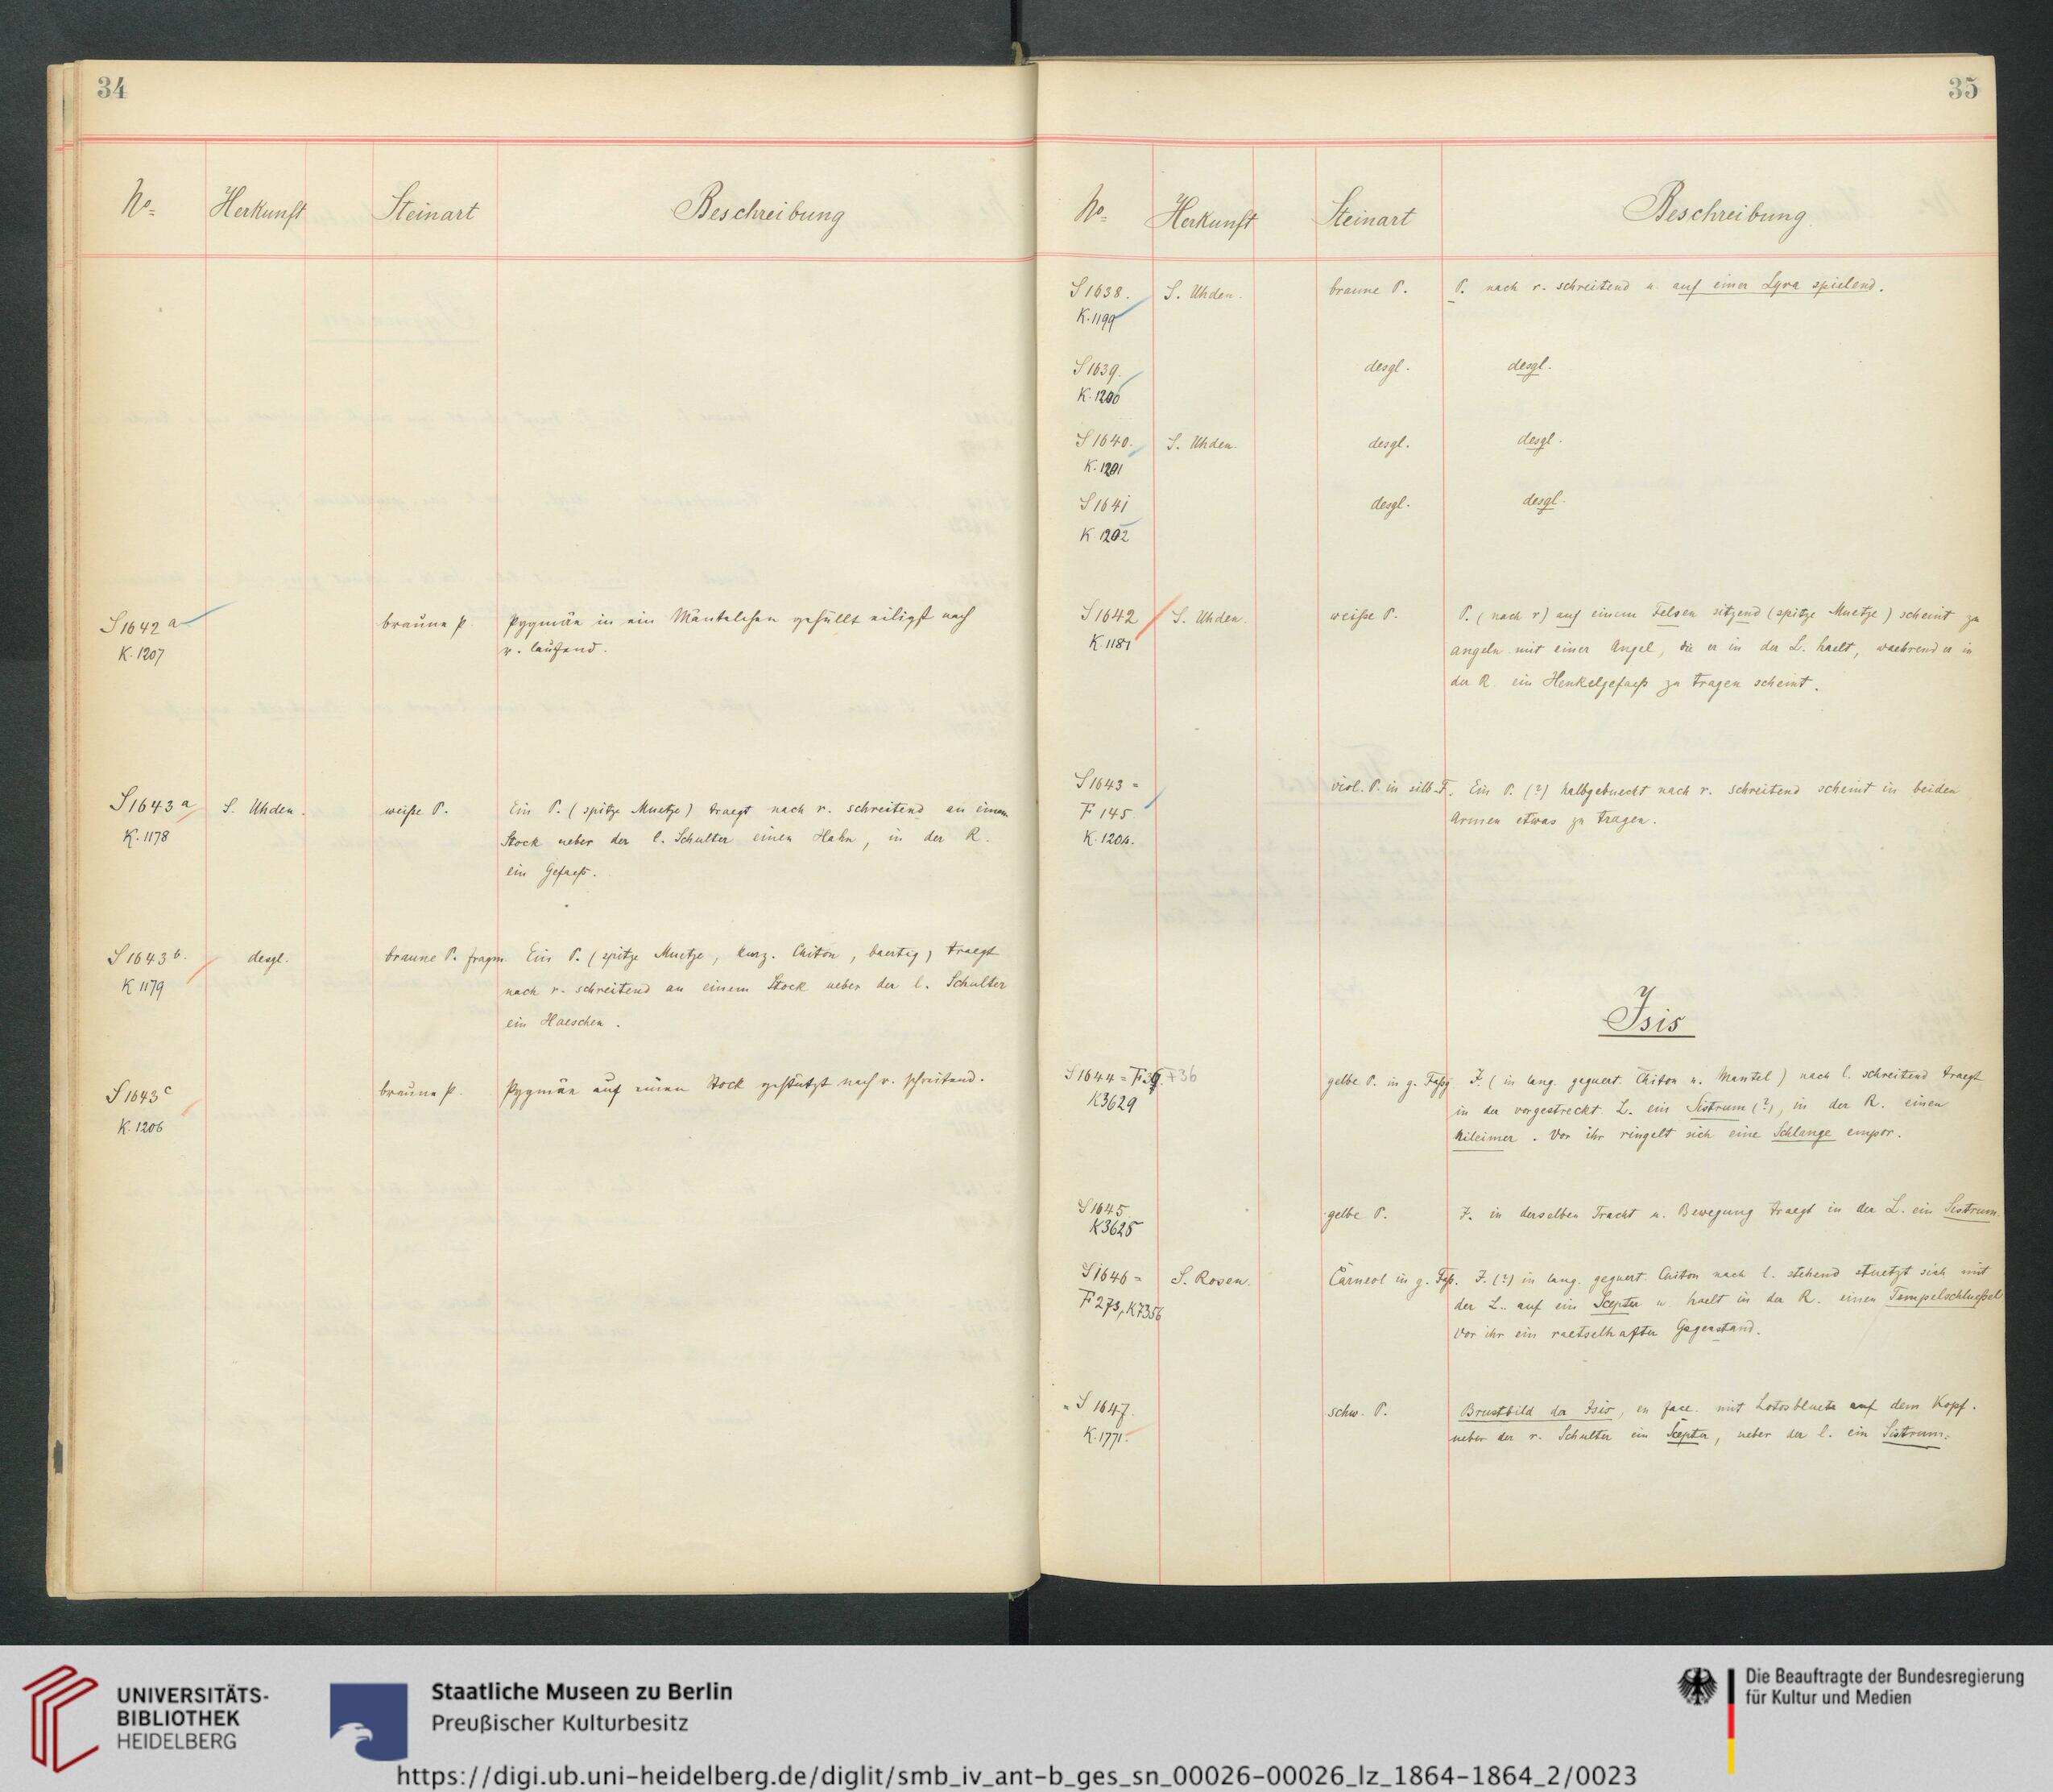 34
No= Herkunft Steinart Beschreibung
S 1642 a braune P. Pygmäe in ein Mäntelchen gehüllt eiligst nach
K. 1207 r. laufend.
S 1643 a S. Uhden. weiße P. Ein P. (spitze Muetze) traegt nach r. schreitend an einem
K. 1178 Stock ueber der l. Schulter einen Hahn, in der R.
ein Gefaeß.
S 1643 b. desgl. braune P. fragm. Ein P. (spitze Muetze, kurz. Chiton, baertig) traegt
K 1179 nach r. schreitend an einem Stock ueber der l. Schulter
ein Haeschen.
S 1643 c braune P. Pygmäe auf einen Stock gestützt nach r. schreitend.
K. 1206
35
No= Herkunft Steinart Beschreibung
S 1638. S. Uhden. braune P. P. nach r. schreitend u. auf einer Lyra spielend.
K. 1199
S 1639. desgl. desgl.
K. 1200
S 1640. S. Uhden. desgl. desgl.
K. 1201
S 1641 desgl. desgl.
K. 1202
S 1642 S. Uhden. weiße P. P. (nach r) auf einem Felsen sitzend (spitze Muetze) scheint zu
K. 1181 angeln mit einer Angel, die er in der L. haelt, waehrend er in
der R. ein Henkelgefaeß zu tragen scheint.
S 1643 = viol. P. in silb. F. Ein P. (?) halbgebueckt nach r. schreitend scheint in beiden
F 145 Armen etwas zu tragen.
K. 1204.
Isis
S 1644 = F36 gelbe P. in g. Faßg. I. (in lang. geguert. Chiton u. Mantel) nach l. schreitend traegt
K3629 in der vorgestreckt. L. ein Sistrum (?), in der R. einen
Nileimer. Vor ihr ringelt sich eine Schlange empor.
S 1645. gelbe P. I. in derselben Tracht u. Bewegung traegt in der L. ein Sistrum.
K3625
S 1646 = S. Rosen. Carneol in g. Faß. I. (?) in lang. geguert. Chiton nach l. stehend stuetzt sich mit
F 273, K7356 der L. auf ein Scepter u. haelt in der R. einen Tempelschlueßel
Vor ihr ein raetselhafter Gegenstand.
S 1647. schw. P. Brustbild der Isis, en face. mit Lotosbluete auf dem Kopf.
K. 1771. ueber der r. Schulter ein Scepter, ueber der l. ein Sistrum.
UNIVERSITÄTS-
BIBLIOTHEK
HEIDELBERG
Staatliche Museen zu Berlin
Preußischer Kulturbesitz
Die Beauftragte der Bundesregierung
für Kultur und Medien
https://digi.ub.uni-heidelberg.de/diglit/smb_iv_ant-b_ges_sn_00026-00026_lz_1864-1864_2/0023